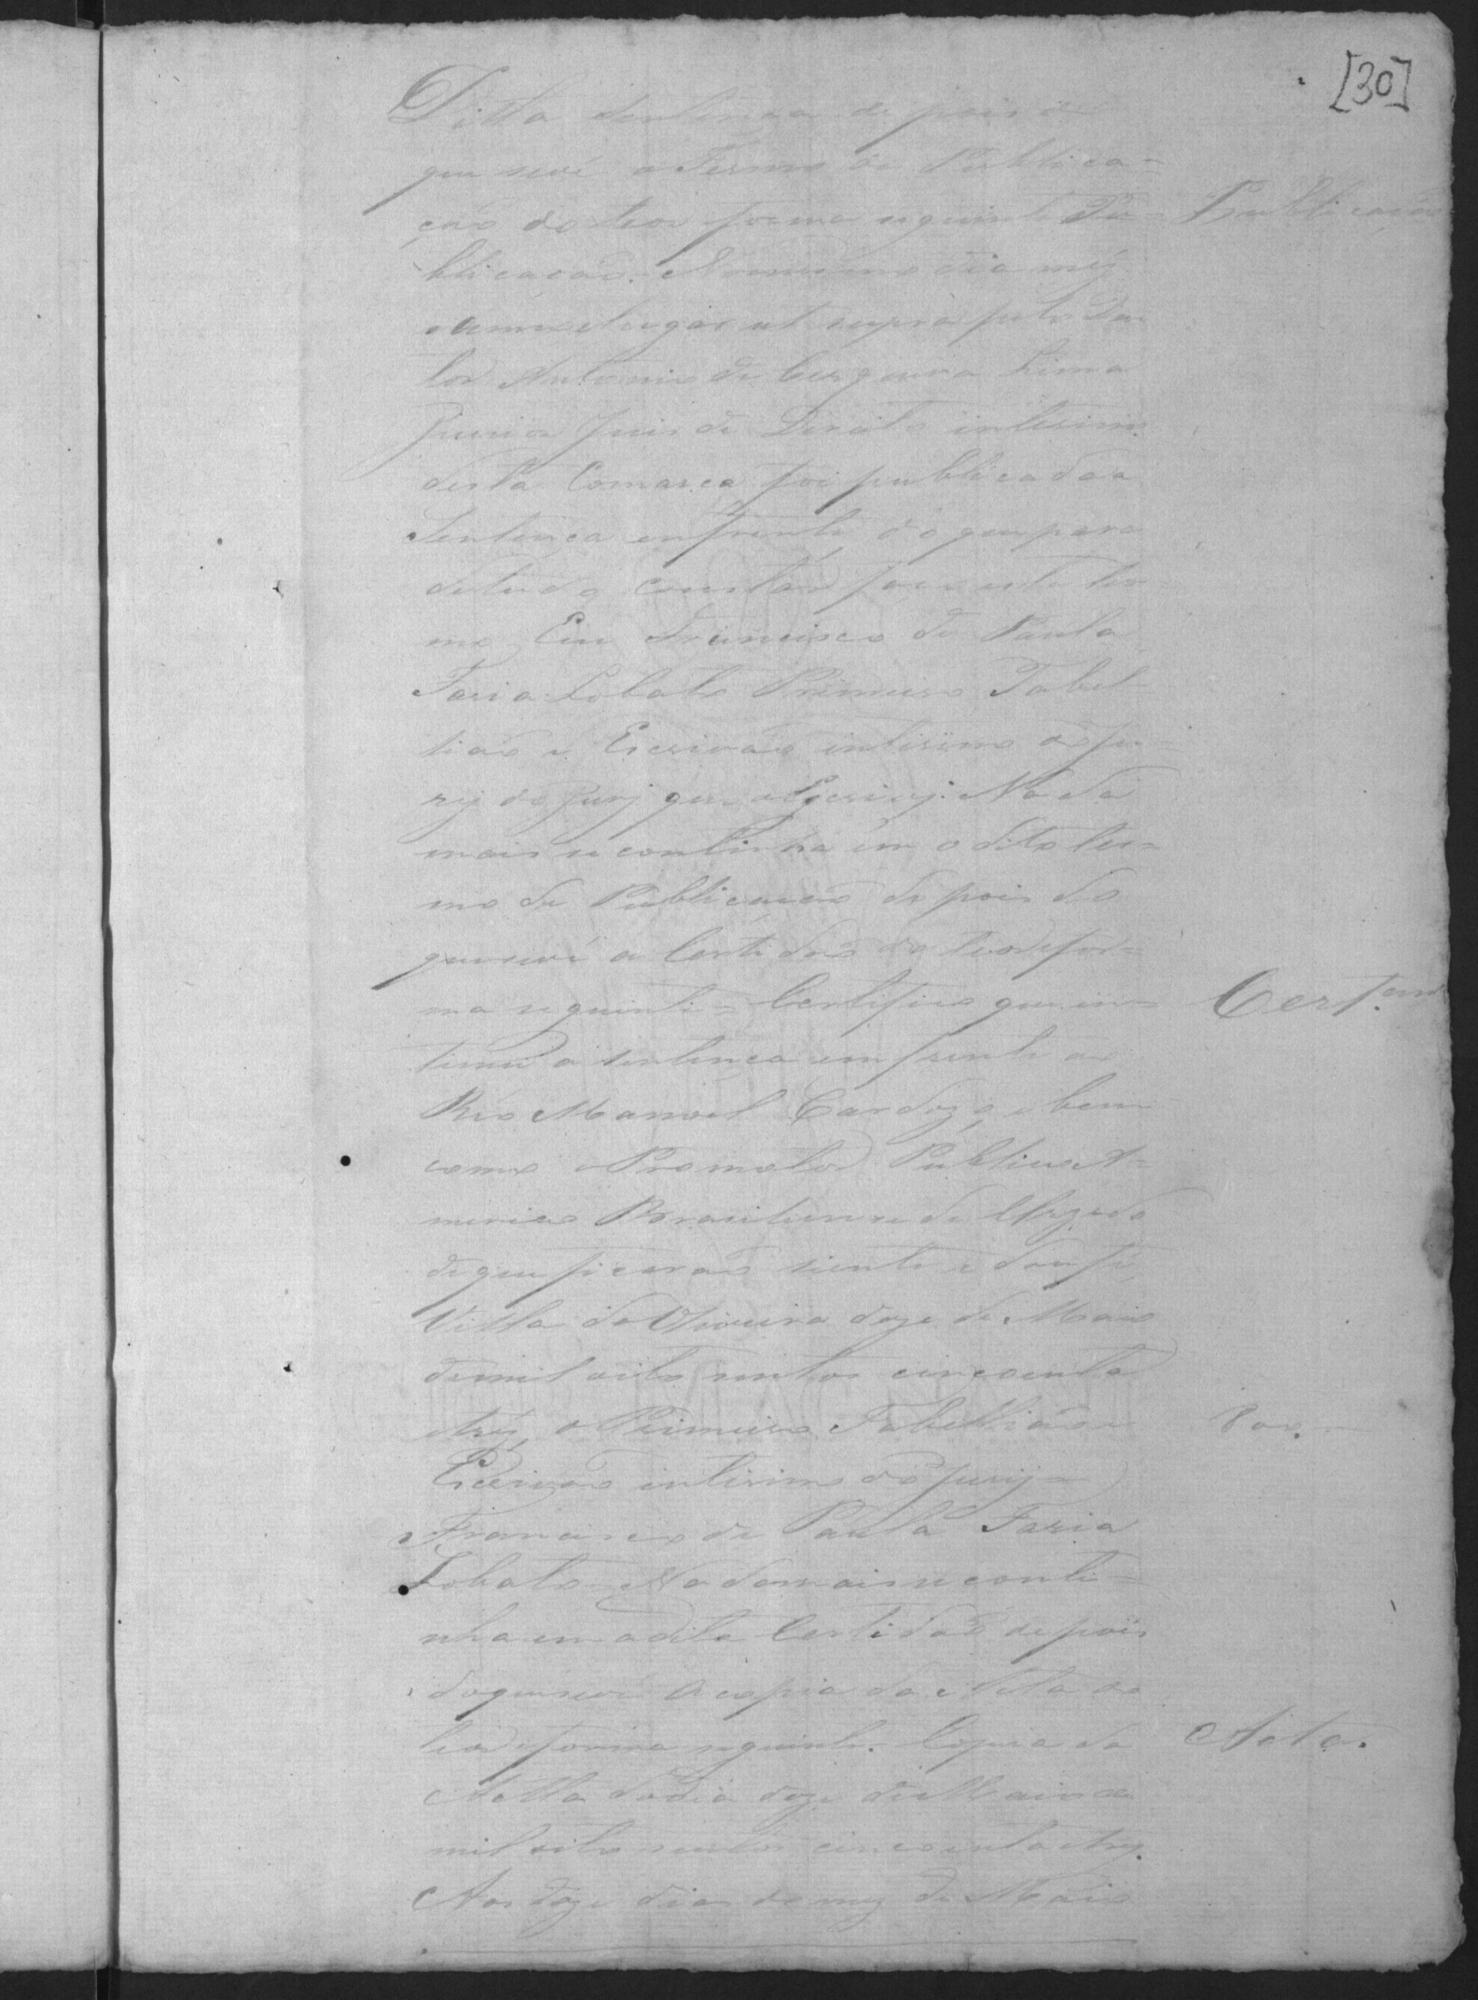 [30]
Ditta sentença depois do
que se vê o Termo de Publica-
ção do teor forma seguinte Pu- Publicação
blicação. No mesmo dia mez
anno e lugar ut supra pelo Dou
tor Antonio de Cerqueira Lima
Junior Juis de Direito interino
desta Comarca foi publicada a
Sentença enfrente, do que para
de tudo constar faço este ter-
mo, Eu Francisco de Paula
Faria Lobato Primeiro Tabel-
lião e Escrivão interino do Ju-
ry que o Escrevj. Nada
mais se continha em o dito ter-
mo de Publicação depois do
que se vê a Certidão do teor e for-
ma seguinte = Certifico que in- Cert.am
timei a sentença em frente ao
Réo Manoel Cardozo, e bem
como o Promotor Publico A-
merico Brasiliense de
de que ficarão siente e dou fé
Villa da Oliveira doze de Maio
de mil oito sentos cincoenta
e trez, o Primeiro Tabellião e
Escrivão interino do Jury =
Francisco de Paula Faria
Lobato. Nada mais se conti-
nha em a dita Certidão depois
do que se vê a copia da Acta do
teor e forma seguinte. Copia da Acta.
Acta do dia doze de Maio de
mil oito sentos cincoenta e trez.
Aos doze dias do mez de Maio